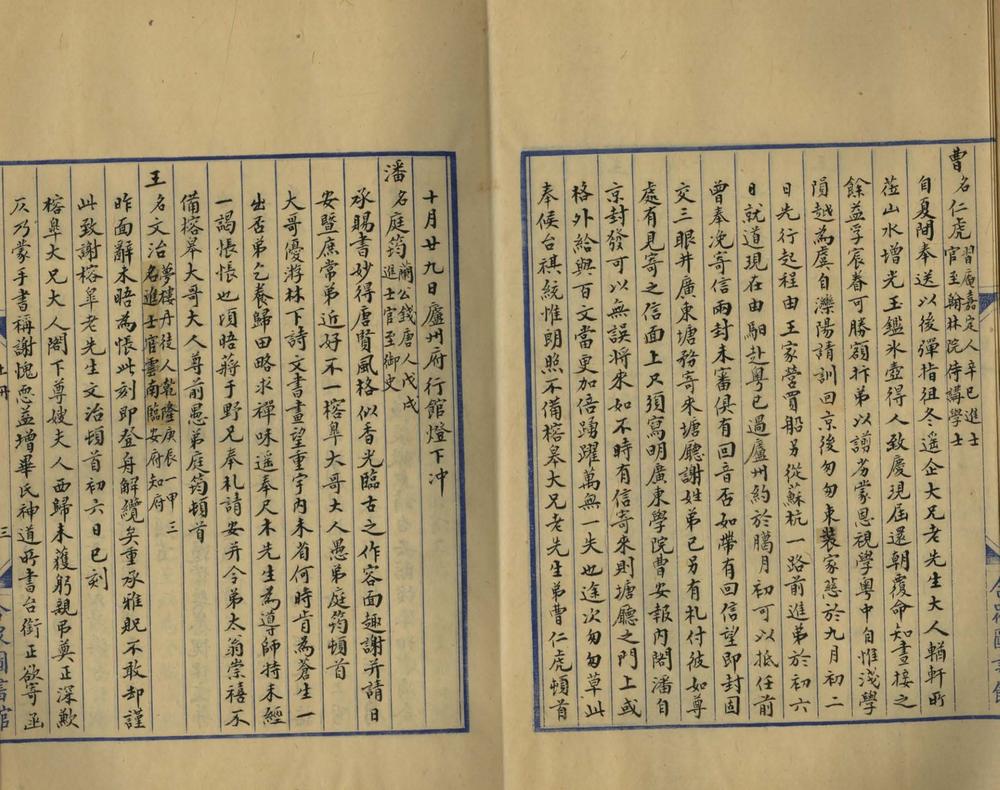 曹名仁虎習庵嘉定人辛巳進士官至翰林院侍講學士
自夏間奉送以後彈指徂冬遥企大兄老先生大人輶軒所
莅山水增光玉鑑氷壺得人致慶現屆還朝覆命知晝接之
餘益孚宸眷可勝額抃弟以譾劣蒙恩視學粤中自惟淺學
隕越為虞自灤陽請訓回京後匆匆束裝家慈於九月初二
日先行起程由王家營買船另從蘇杭一路前進弟於初六
日就道現在由馹赴粤已過廬州約於臈月初可以抵任前
曾奉浼寄信兩封未審俱有回音否如帶有回信望即封固
交三眼井廣東塘務寄來塘聽謝姓弟已另有札付彼如尊
處有見寄之信面上只須寫明廣東學院曹安報內閣潘自
京封發可以無誤將來如不時有信寄來則塘聽之門上或
格外給與百文當更加倍踴躍萬無一失也途次匆匆草此
奉候台祺統惟朗照不備榕皋大兄老先生弟曹仁虎頓首
十月廿九日廬州府行館燈下冲
潘名庭筠蘭公錢唐人戊戌進士官至御史
承賜書妙得唐賢風格似香光臨古之作容面趣謝并請日
安暨庶常弟近好不一榕皋大哥大人愚弟庭筠頓首
大哥優游林下詩文書畫望重宇內未省何時肯為蒼生一
出否弟乞養歸田略求禪味遥奉尺木先生為導師特未經
一謁悵悵也頃晤蔣于野兄奉札請安并令弟太翁崇禧不
備榕皋大哥大人尊前愚弟庭筠頓首
王名文治夢樓丹徒人乾隆庚辰一甲三名進士官雲南臨安府知府
昨面辭未晤為悵此刻即登舟解纜矣重承雅貺不敢却謹
此致謝榕皋老先生文治頓首初六日巳刻
榕皋大兄大人閣下尊嫂夫人西歸未獲躬親弔奠正深歉
仄乃蒙手書稱謝愧恧益增畢氏神道所書台銜正欲寄函
三